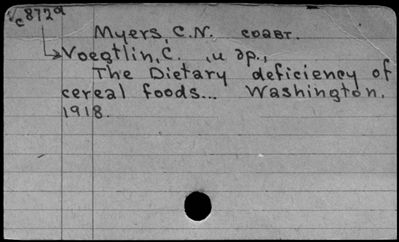 Vc872a
Myers, C.N. соавт.
Voegtlin, C. , и др.,
The Dietary deficiency of
cereal foods... Washington.
1918.